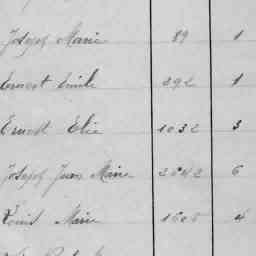 Joseph Marie 89 1
Ernest Emile 392 1
Ernest Elie 1032 3
Joseph Jean Marie 2042 6
Louis Marie 1605 4